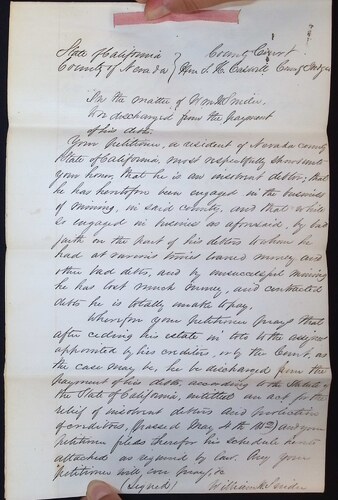 State of California } County Court
County of Nevada } Hon T. H. Caswell County Judge
In the matter of Wm H Snider
for discharged from the payment
of his debts
Your Petitioner, a resident of Nevada county
State of California, most respectfully shows unto
your honor, that he is an insolvent debtor; that
he has heretofore been engaged in the business
of mining, in said county, and that while
so engaged in business as aforesaid, by bad
faith on the part of his debtors to whom he
had at various times loaned money and
other bad debts, and by unsuccessful mining
he has lost much money, and contracted
debts he is totally unable to pay.
Wherefore your Petitioner prays that
after ceding his estate in toto to the assignee
appointed by his creditors, or by the Court, as
the case may be, he be discharged from the
Payment of his debts, according to the Statute of
the State of California, entitled an act for the
relief of insolvent debtors and protection
of creditors, passed May 4th 1852 and your
petitioner files therefor his schedule hereto
attached as required by law. And your
Petitioner will ever pray &c
(Signed) William H Snider